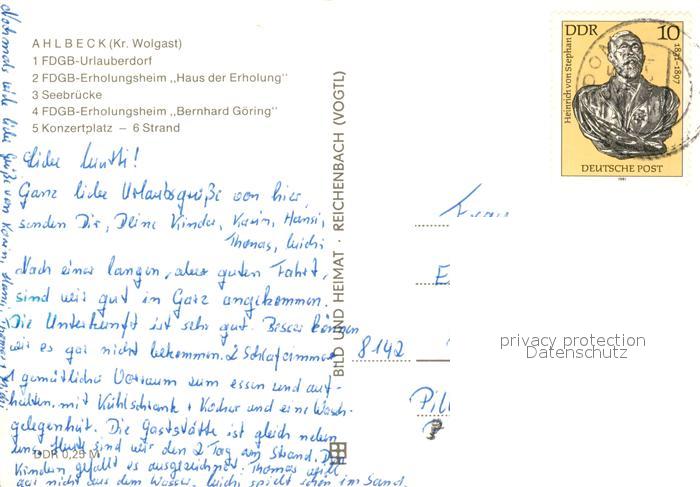 AHLBECK (Kr. Wolgast)
1 FDGB-Urlauberdorf
2 FDGB-Erholungsheim „Haus der Erholung"
3 Seebrücke
4 FDGB-Erholungsheim „Bernhard Göring"
5 Konzertplatz – 6 Strand
Liebe Mutti!
Ganz liebe Urlaubsgrüße von hier,
senden Dir, Deine Kinder, Karin, Hansi,
Thomas,
Nach einer langen, aber guten Fahrt,
sind wir gut in Garz angekommen.
Die Unterkunft ist sehr gut. Besser können
wir es gar nicht bekommen. 2 Schlafzimmer
1 gemütlicher Vorraum zum essen und auf-
halten, mit Kühlschrank + Kocher und eine Wasch-
gelegenheit. Die Gaststätte ist gleich neben
uns. Heute sind wir den 2 Tag am Strand. Den
Kindern gefällt es ausgezeichnet. Thomas will
gar nicht aus dem Wasser, spielt schön im Sand.
DDR 0,25 M
BILD UND HEIMAT · REICHENBACH (VOGTL)
DDR 10
Heinrich von Stephan
1831-1897
DEUTSCHE POST
1981
Frau
8142
privacy protection
Datenschutz